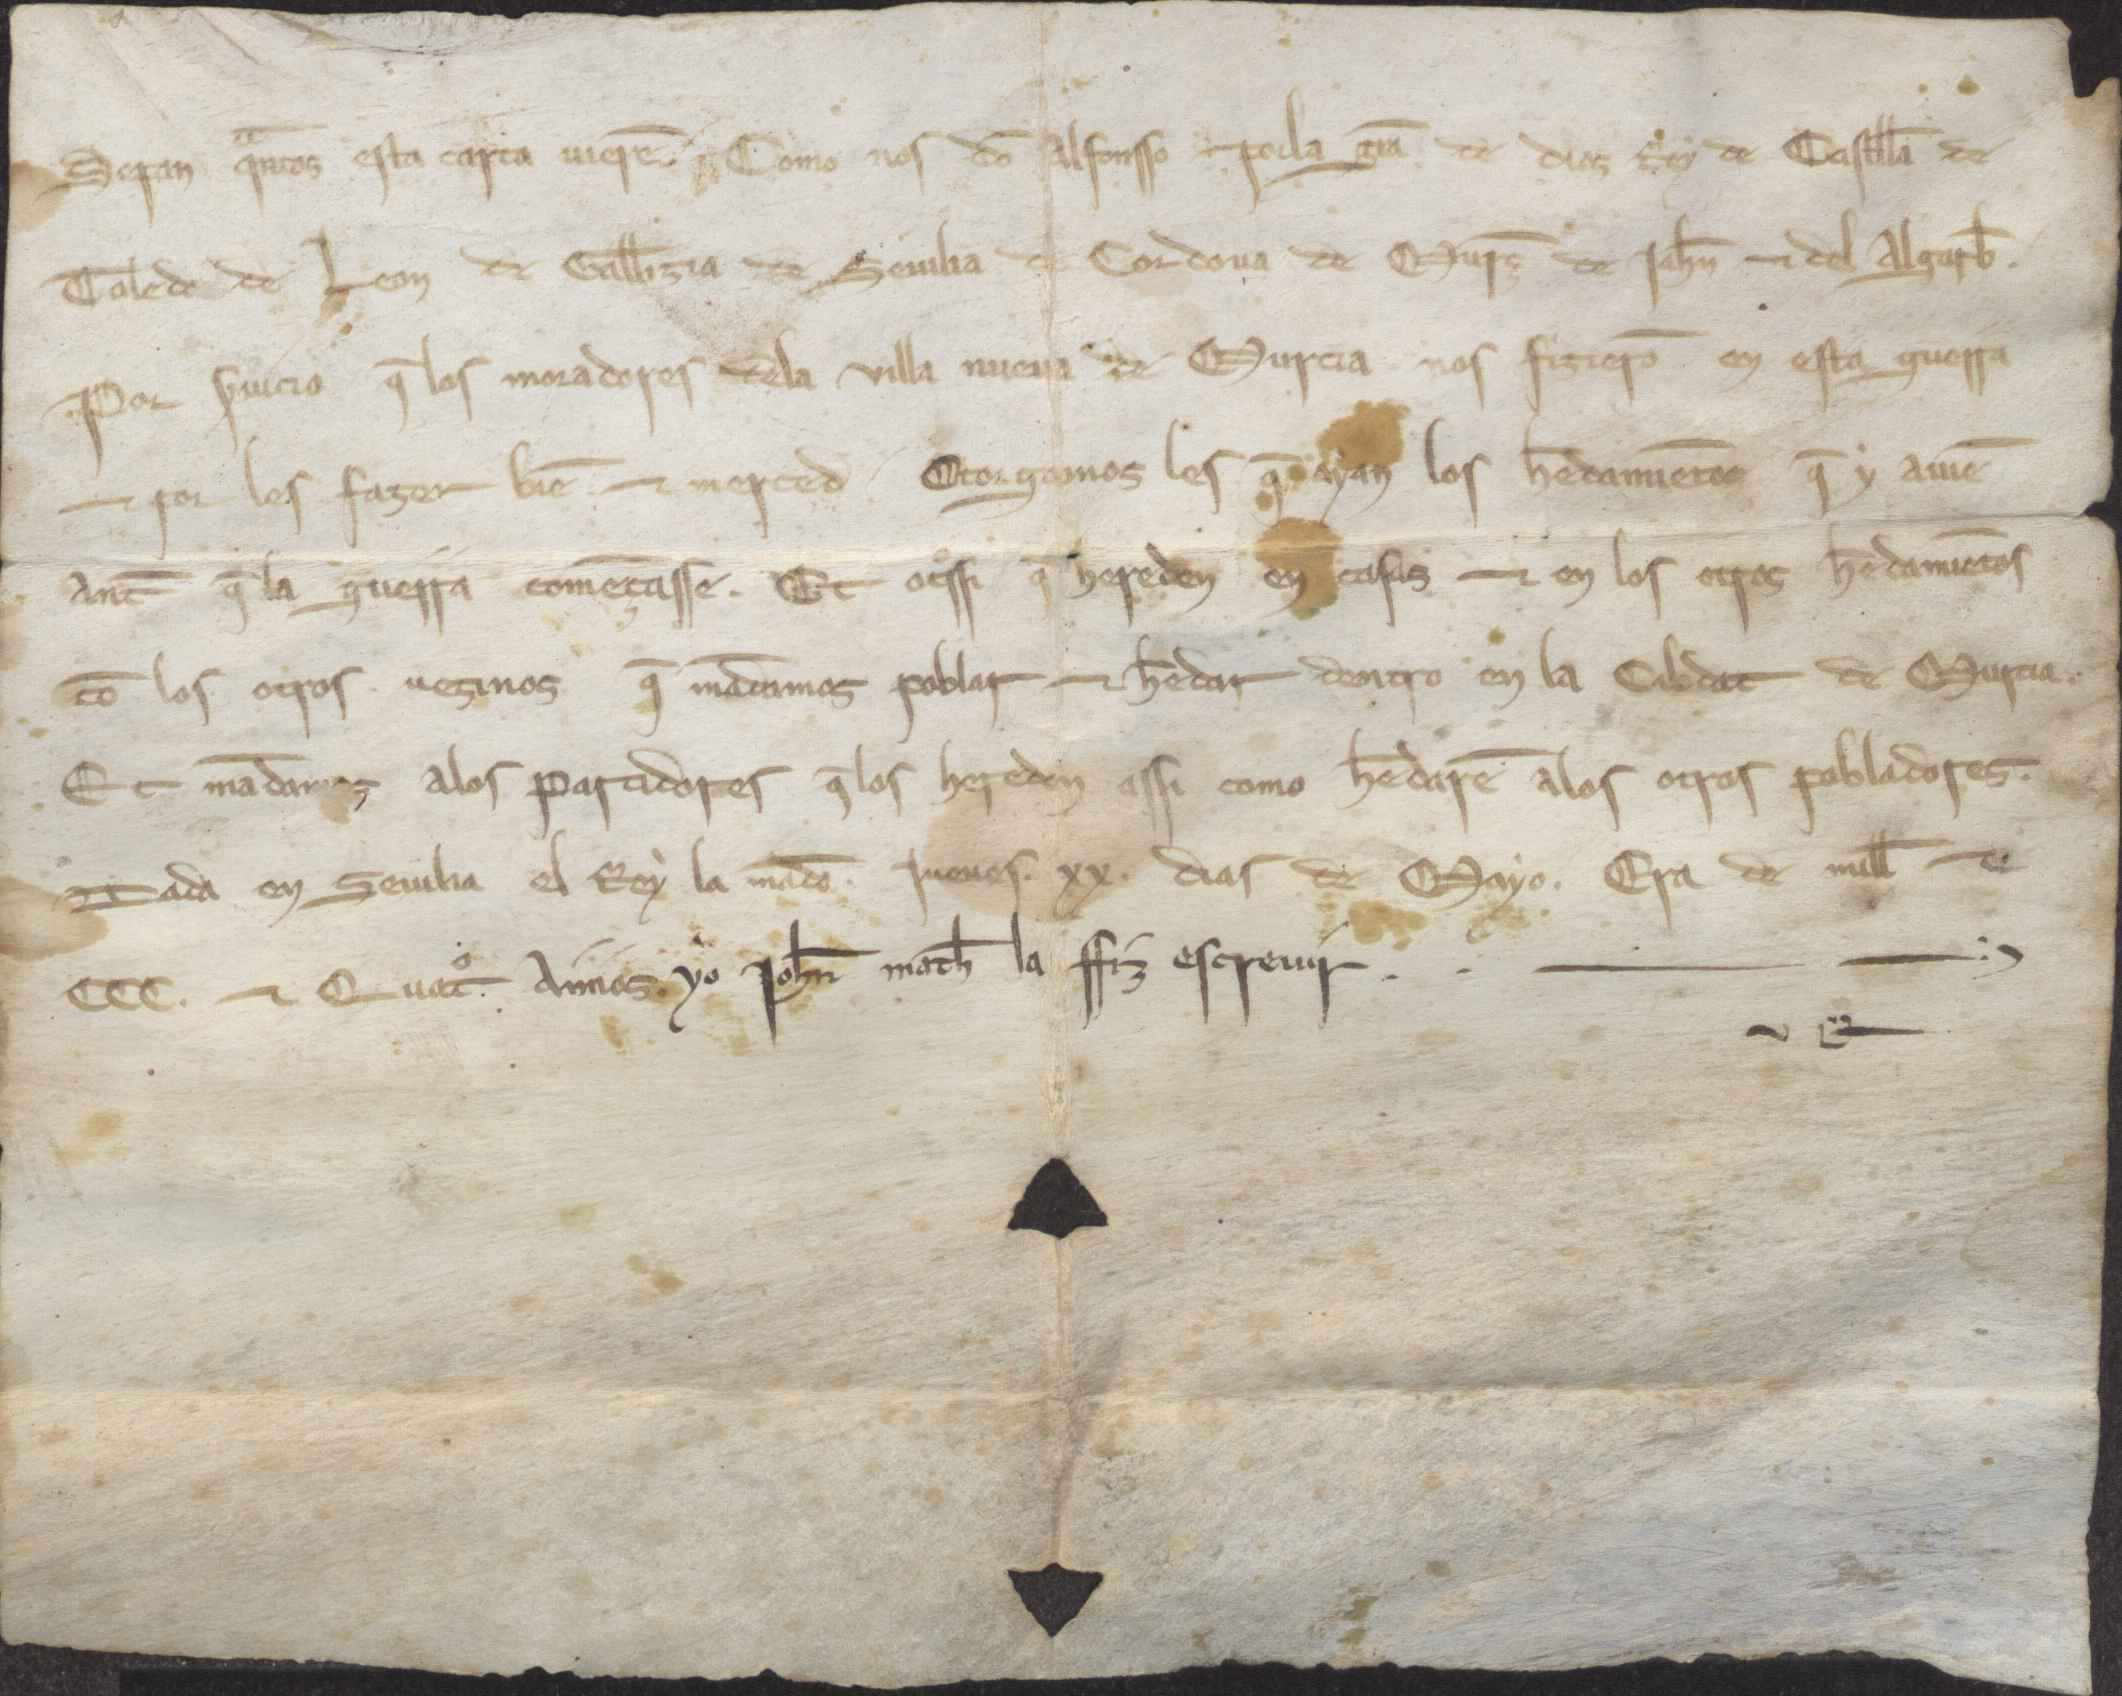 Sepan qᵃntos esta carta uierẽ. Como nos dõ Alfonsso por la grã de dios Rey de Castiellã de
Toledo de Leon de Gallizia de Seuilla de Cordoua de Murç̃ de Jahñ ⁊ del Algarb̃.
Por s̃uicio q̃ los moradores dela villa nueua de Murcia nos fizierõ en esta guerra
⁊ por les fazer biẽ ⁊ merced Otorgamos les q̃ ayan los h̃edamiẽtos q̃ y auiẽ
ant̃ q̃ la guerra comẽçasse. Et otͦssi q̃ hereden en casas ⁊ en los otros h̃edamiẽtos
cõ los otros uezinos q̃ mãdamos poblar ⁊ h̃edar dentro en la Cibdat de Murcia.
Et mãdamos alos Partidores q̃ los hereden assi como h̃edarẽ alos otros pobladores.
Dada en Seuilla el Rey la mãdo. Jueues. xx. dias de Mayo. Era de mill ⁊
CCC. ⁊ Quatͦ. Annos. yo Joh̃n math̃ la ffiz escreuir.